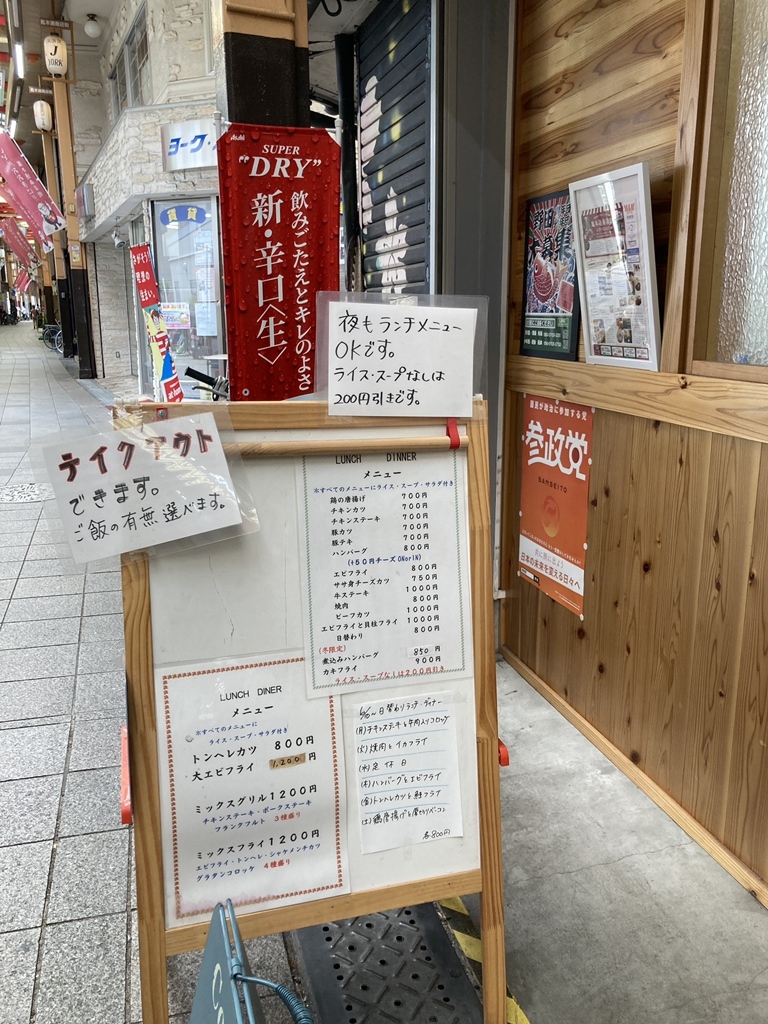 J
YORK
ヨーク
賃貸
Asahi
SUPER
"DRY"
飲みごたえとキレのよさ
新・辛口〈生〉
さがそう!
理想の
住まい
夜もランチメニュー
OKです。
ライス・スープなしは
200円引きです。
テイクアウト
できます。
ご飯の有無選べます。
LUNCH DINNER
メニュー
※すべてのメニューにライス・スープ・サラダ付き
鶏の唐揚げ 700円
チキンカツ 700円
チキンステーキ 700円
豚カツ 700円
豚テキ 700円
ハンバーグ 800円
(+50円チーズONorIN)
エビフライ 800円
ササ身チーズカツ 750円
牛ステーキ 1000円
焼肉 800円
ビーフカツ 1000円
エビフライと貝柱フライ 1000円
日替わり 800円
(冬限定)
煮込みハンバーグ 850円
カキフライ 900円
ライス・スープなしは200円引き
LUNCH DINER
メニュー
※すべてのメニューに
ライス・スープ・サラダ付き
トンヘレカツ 800円
大エビフライ 1,200円
ミックスグリル 1200円
チキンステーキ・ポークステーキ
フランクフルト 3種盛り
ミックスフライ 1200円
エビフライ・トンヘレ・シャケメンチカツ
グラタンコロッケ 4種盛り
日替わりランチ・ディナー
(月)チキンステーキと牛肉入りコロッケ
(火)焼肉とイカフライ
(水)定休日
(木)ハンバーグとエビフライ
(金)トンヘレカツと鮭フライ
(土)鶏唐揚げと厚切りベーコン
各800円
大募集
国民が政治に参加する党
参政党
SANSEITO
日本の未来を変える日々へ